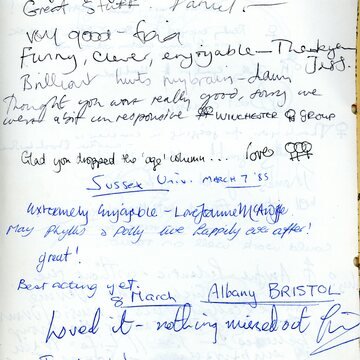 Great Stuff.
very good -
Funny, clever, enjoyable - Thankyou
Brilliant hurts my brain - Dawn
Thought you were really good, sorry we
were a bit un responsive WINCHESTER GROUP
Glad you dropped the 'age' column... love
SUSSEX UNIV. MARCH 7 '85
Extremely Enjoyable - Love Joanne
May Phyllis & Polly live happily ever after!
great!
Best acting yet.
8 March Albany BRISTOL
Loved it - nothing missed out